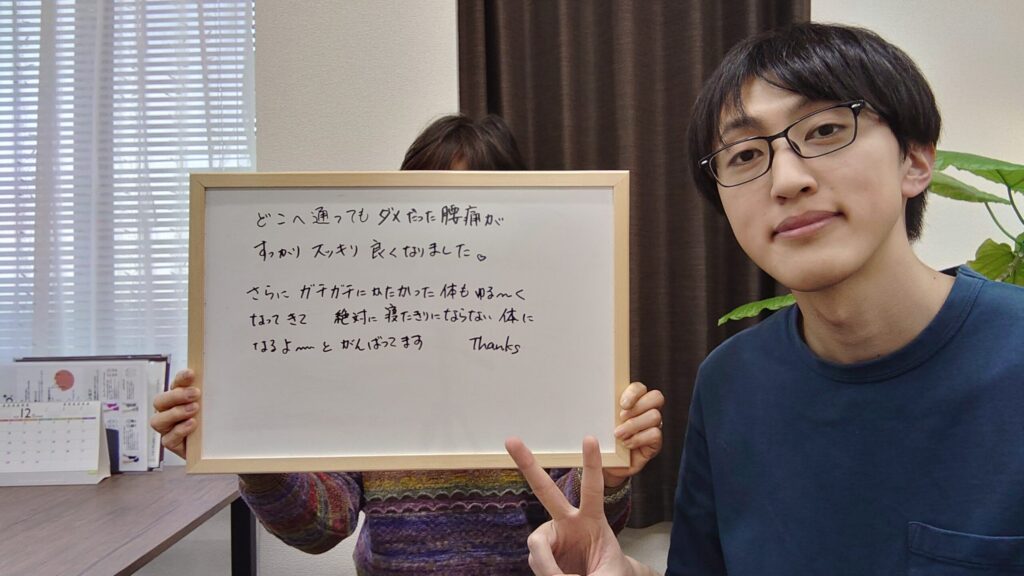 どこへ通ってもダメだった腰痛が
すっかりスッキリ良くなりました。
さらにガチガチにかたかった体もゆる〜く
なってきて 絶対に寝たきりにならない体に
なるよ〜とがんばってます Thanks
12